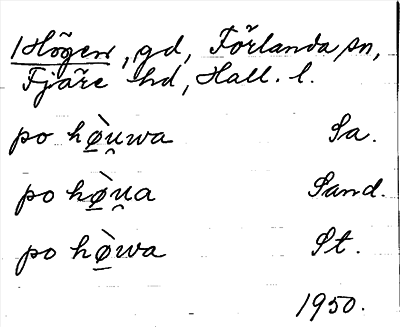 1 Högen, gd, Förlanda sn,
Fjäre hd, Hall. l.
po hø̱̀u̯wa Sa.
po hø̱̀u̯a Sand.
po hø̱̀wa St.
1950.